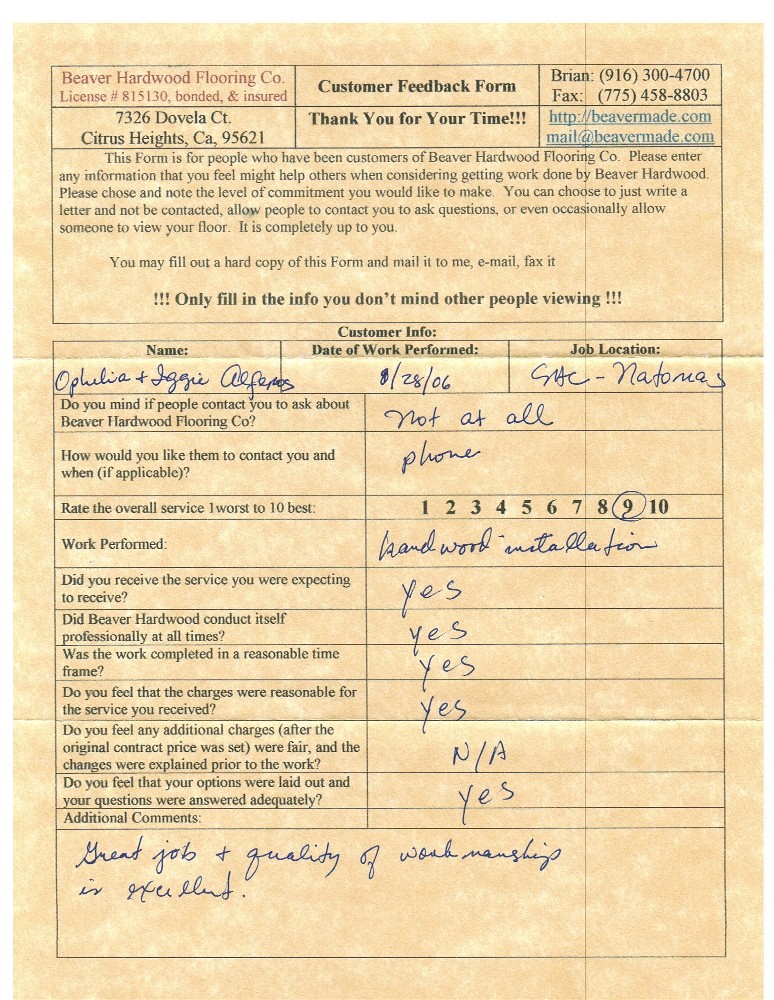 Beaver Hardwood Flooring Co.
License # 815130, bonded, & insured
Customer Feedback Form
Brian: (916) 300-4700
Fax: (775) 458-8803
7326 Dovela Ct.
Citrus Heights, Ca, 95621
Thank You for Your Time!!!
http://beavermade.com
mail@beavermade.com
This Form is for people who have been customers of Beaver Hardwood Flooring Co. Please enter
any information that you feel might help others when considering getting work done by Beaver Hardwood.
Please chose and note the level of commitment you would like to make. You can choose to just write a
letter and not be contacted, allow people to contact you to ask questions, or even occasionally allow
someone to view your floor. It is completely up to you.
You may fill out a hard copy of this Form and mail it to me, e-mail, fax it
!!! Only fill in the info you don't mind other people viewing !!!
Customer Info:
Name:
Date of Work Performed:
Job Location:
Ophelia + Iggie
/28/06
SAC - Natomas
Do you mind if people contact you to ask about
Beaver Hardwood Flooring Co?
Not at all
How would you like them to contact you and
when (if applicable)?
phone
Rate the overall service 1worst to 10 best:
1 2 3 4 5 6 7 8 9 10
Work Performed:
hardwood installation
Did you receive the service you were expecting
to receive?
yes
Did Beaver Hardwood conduct itself
professionally at all times?
yes
Was the work completed in a reasonable time
frame?
yes
Do you feel that the charges were reasonable for
the service you received?
yes
Do you feel any additional charges (after the
original contract price was set) were fair, and the
changes were explained prior to the work?
N/A
Do you feel that your options were laid out and
your questions were answered adequately?
yes
Additional Comments:
Great job + quality of workmanship
is excellent.